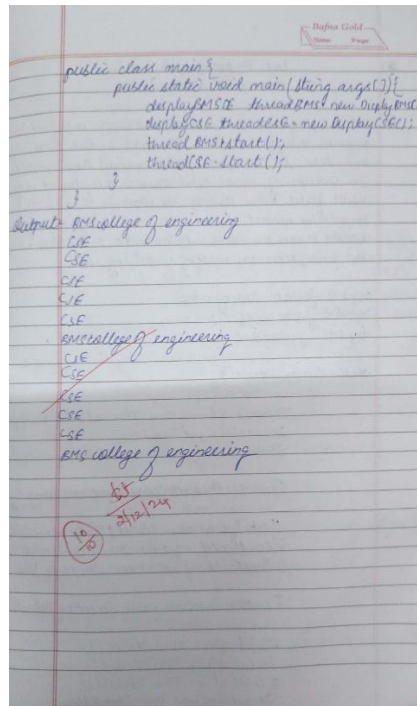 Bafna Gold
Date: Page:
public class main {
public static void main(string args[]){
displayBMSCE threadBMS = new DisplayBMSC
displayCSE threadCSE = new DisplayCSE();
thread BMS.start();
threadCSE.start();
}
}
Output:- BMS college of engineering
CSE
CSE
CSE
CSE
CSE
BMS college of engineering
CSE
CSE
CSE
CSE
CSE
BMS college of engineering
2/12/24
10/10